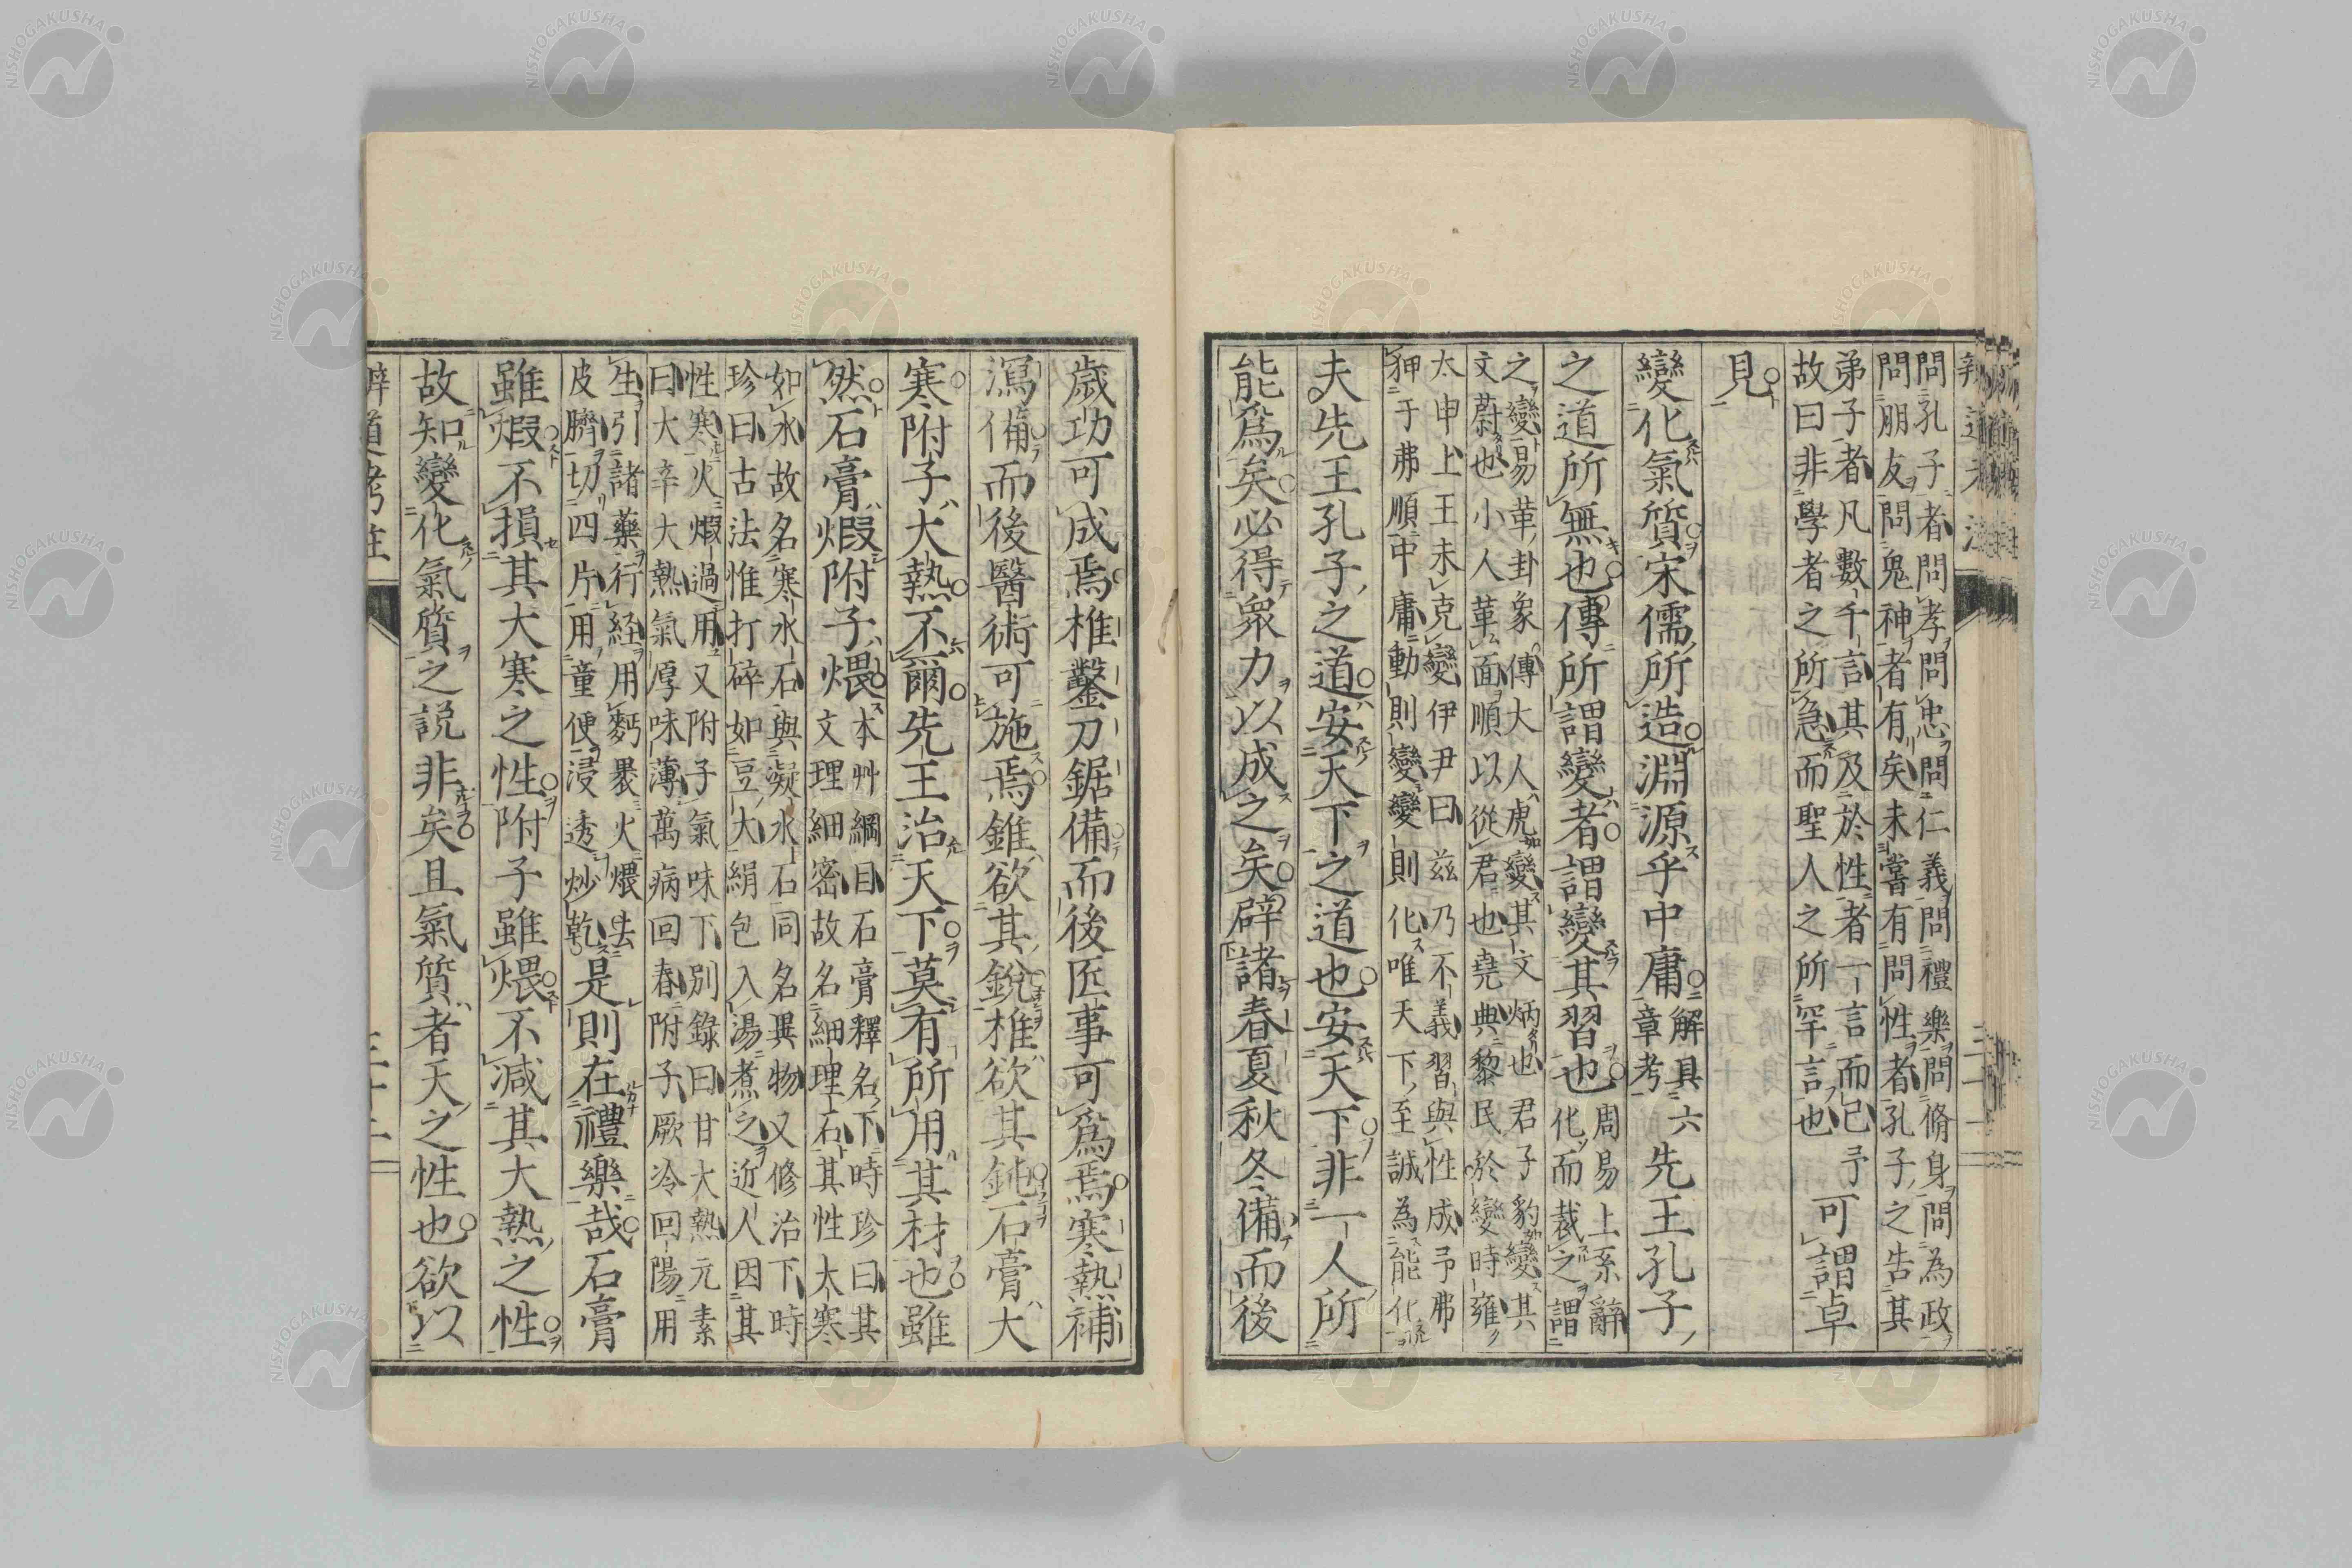 問孔子者問孝問忠問仁義問禮樂問脩身問為政
問朋友問鬼神者有矣未嘗有問性者孔子之告其
弟子者凡數千言其及於性者一言而已予
故曰非學者之所急而聖人之所罕言也
可謂卓
見
變化氣質宋儒所造淵源乎中庸
解具六
章考
先王孔子
之道所無也傳所謂變者謂變其習也
周易上系辭
化而裁之謂
之變易革卦象傳大人虎變其文炳也君子豹變其
文蔚也小人革面順以從君也堯典黎民於變時雍
太甲上王未克變伊尹曰茲乃不義習與性成予弗
狎于弗順中庸動則變變則化唯天下至誠為能化
夫先王孔子之道安天下之道也安天下非一人所
能爲矣必得衆力以成之矣辟諸春夏秋冬備而後
歲功可成焉椎鑿刀鋸備而後匠事可爲焉寒熱補
瀉備而後醫術可施焉錐欲其銳椎欲其鈍石膏大
寒附子大熱不爾先王治天下莫有所用其材也雖
然石膏煆附子煨
本艸綱目石膏釋名下時珍曰其
文理細密故名細理石其性大寒
如水故名寒水石與凝水石同名異物又修治下時
珍曰古法惟打碎如豆大絹包入湯煮之近人因其
性寒火煆過用又附子氣味下別錄曰甘大熱元素
曰大辛大熱氣厚味薄萬病回春附子厥冷回陽用
生引諸藥行経用麪褁火煨法
皮臍切四片用童便浸透炒乾
是則在禮樂哉石膏
雖煆不損其大寒之性附子雖煨不減其大熱之性
故知變化氣質之説非矣且氣質者天之性也欲以